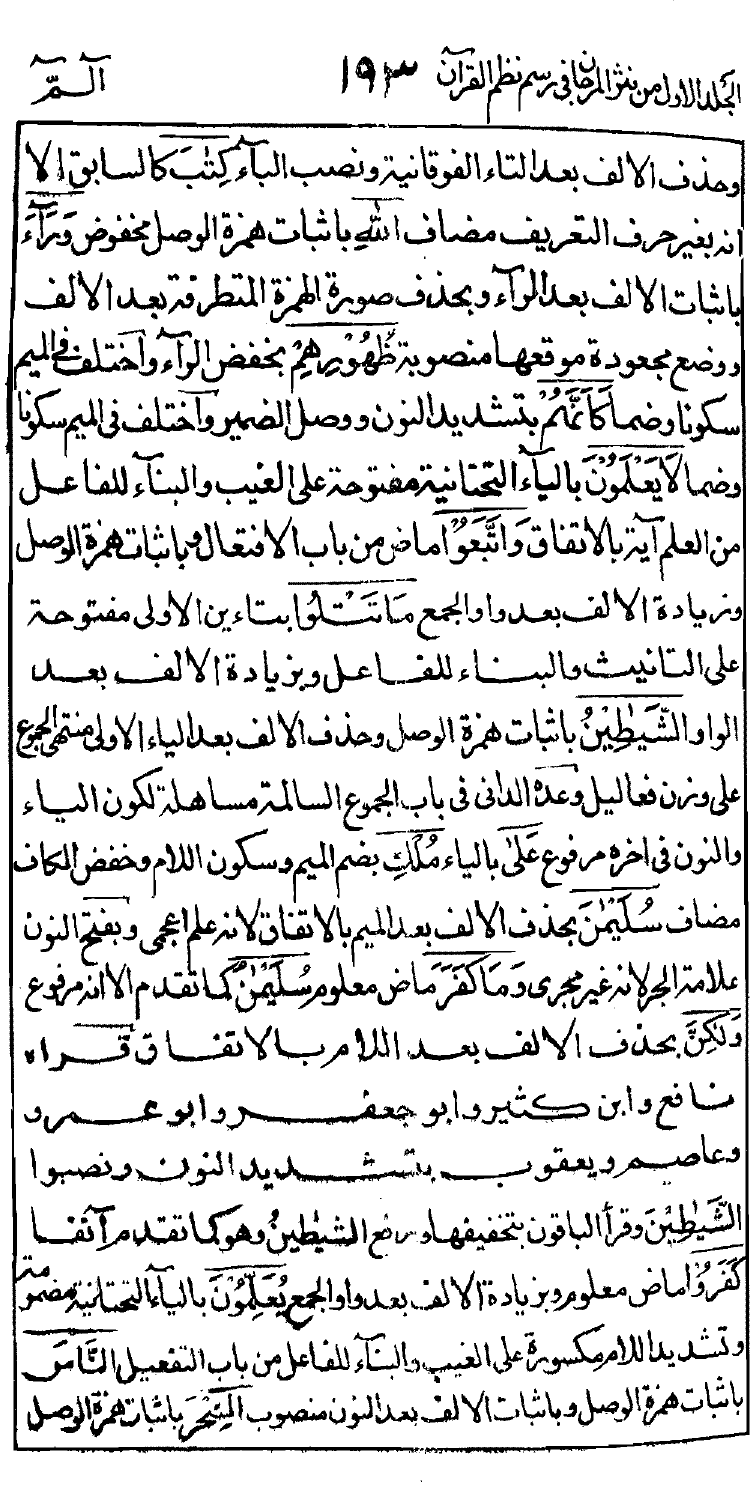 الجلد الاول من نثر المرجان في رسم نظم القرآن ١٩٣ الٓمّٓ
وحذف الالف بعد التاء الفوقانية ونصب البآء كِتٰبَ كالسابق الا
انه بغير حرف التعريف مضاف اللهِ باثبات همزة الوصل مخفوض وَرَآءَ
باثبات الالف بعد الرآء وبحذف صورة الهمزة المتطرفة بعد الالف
ووضع مجعودة موقعها منصوبة ظُهُوْرِهِمْ بخفض الرآء واختلف في الميم
سكونا وضما كَاَنَّهُمْ بتشديد النون ووصل الضمير واختلف في الميم سكونا
وضما لَا يَعْلَمُوْنَ بالياء التحتانية مفتوحة على الغيب والبنآء للفاعل
من العلم آية بالاتفاق وَاتَّبَعَوْا ماض من باب الافتعال وباثبات همزة الوصل
وزيادة الالف بعد واو الجمع مَا تَتْلُوا بتاءين الاولى مفتوحة
على التانيث والبناء للفاعل وبزيادة الالف بعد
الواو الشَّيٰطِيْنُ باثبات همزة الوصل وحذف الالف بعد الياء الاولى منتهى الجموع
على وزن فعاليل وعده الدانى فى باب الجموع السالمة مساهلة لكون الياء
والنون فى اخره مرفوع عَلٰى بالياء مُلْكِ بضم الميم وسكون اللام وخفض الكاف
مضاف سُلَيْمٰنَ بحذف الالف بعد الميم بالاتفاق لانه علم اعجمى وبفتح النون
علامة الجر لانه غير مجرى وَمَا كَفَرَ ماض معلوم سُلَيْمٰنُ كما تقدم الا انه مرفوع
وَلٰكِنَّ بحذف الالف بعد اللام بالاتفاق قراه
نافع وابن كثير وابو جعفر وابو عمرو
وعاصم ويعقوب بتشديد النون ونصبوا
الشَّيٰطِيْنَ وقرأ الباقون بتخفيفها ورفع الشيٰطينُ وهو كما تقدم آنفا
كَفَرُوْا ماض معلوم وبزيادة الالف بعد واو الجمع يُعَلِّمُوْنَ بالياء التحتانية مضمومة
وتشديد اللام مكسورة على الغيب والبنآء للفاعل من باب التفعيل النَّاسَ
باثبات همزة الوصل وباثبات الالف بعد النون منصوب السِّحْرَ باثبات همزة الوصل